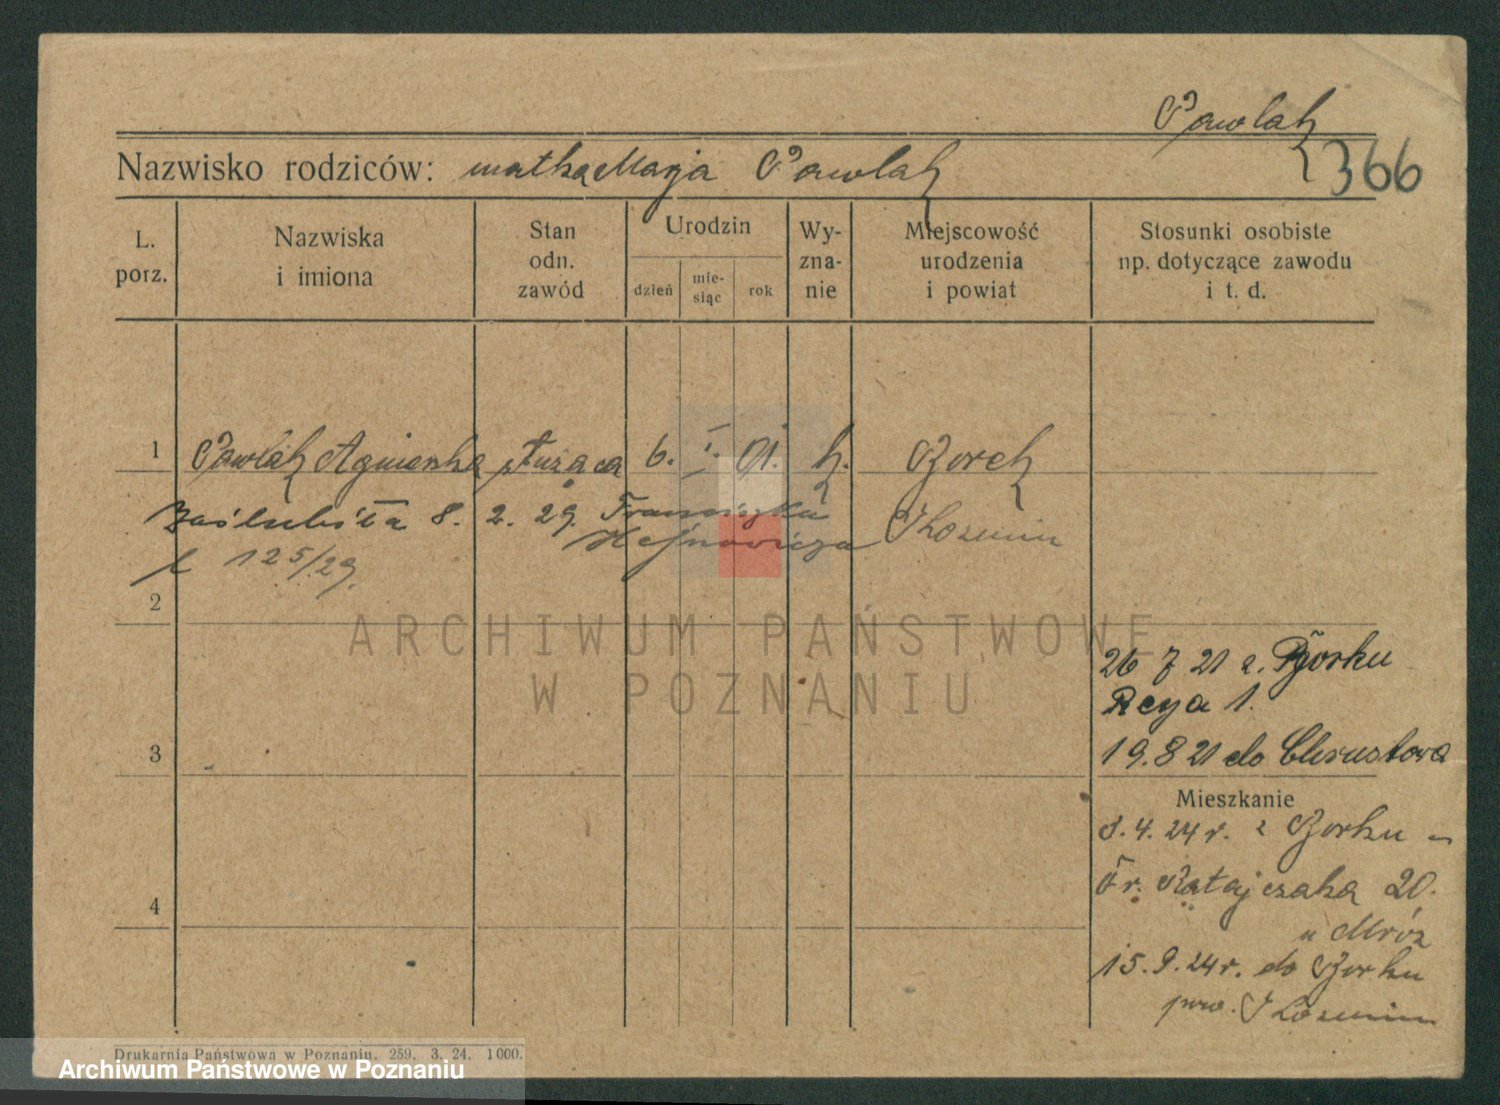 Pawlak
366
Nazwisko rodziców: matka Marja Pawlak
L. porz.
Nazwiska i imiona
Stan odn. zawód
Urodzin
dzień
mie-siąc
rok
Wy-zna-nie
Miejscowość urodzenia i powiat
Stosunki osobiste np. dotyczące zawodu i t. d.
1 Pawlak Agnieszka służąca 6. I. 01. k. Borek
Zaślubiła 8. 2. 29. Franciszka
Hejnowicza
Koźmin
125/29.
2
ARCHIWUM PAŃSTWOWE
W POZNANIU
26 7 21 z. Borku
Reya 1.
3
19.8 21 do Chrustowa
Mieszkanie
3.4.24 r. z Borku -
Fr. Ratajczaka 20.
4
u Mróz
15.9.24 r. do Borku
pow. Koźmin
Drukarnia Państwowa w Poznaniu. 259. 3. 24. 1000.
Archiwum Państwowe w Poznaniu